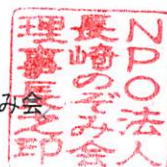 み会
NPO法人
長崎のぞみ会
理事長之印